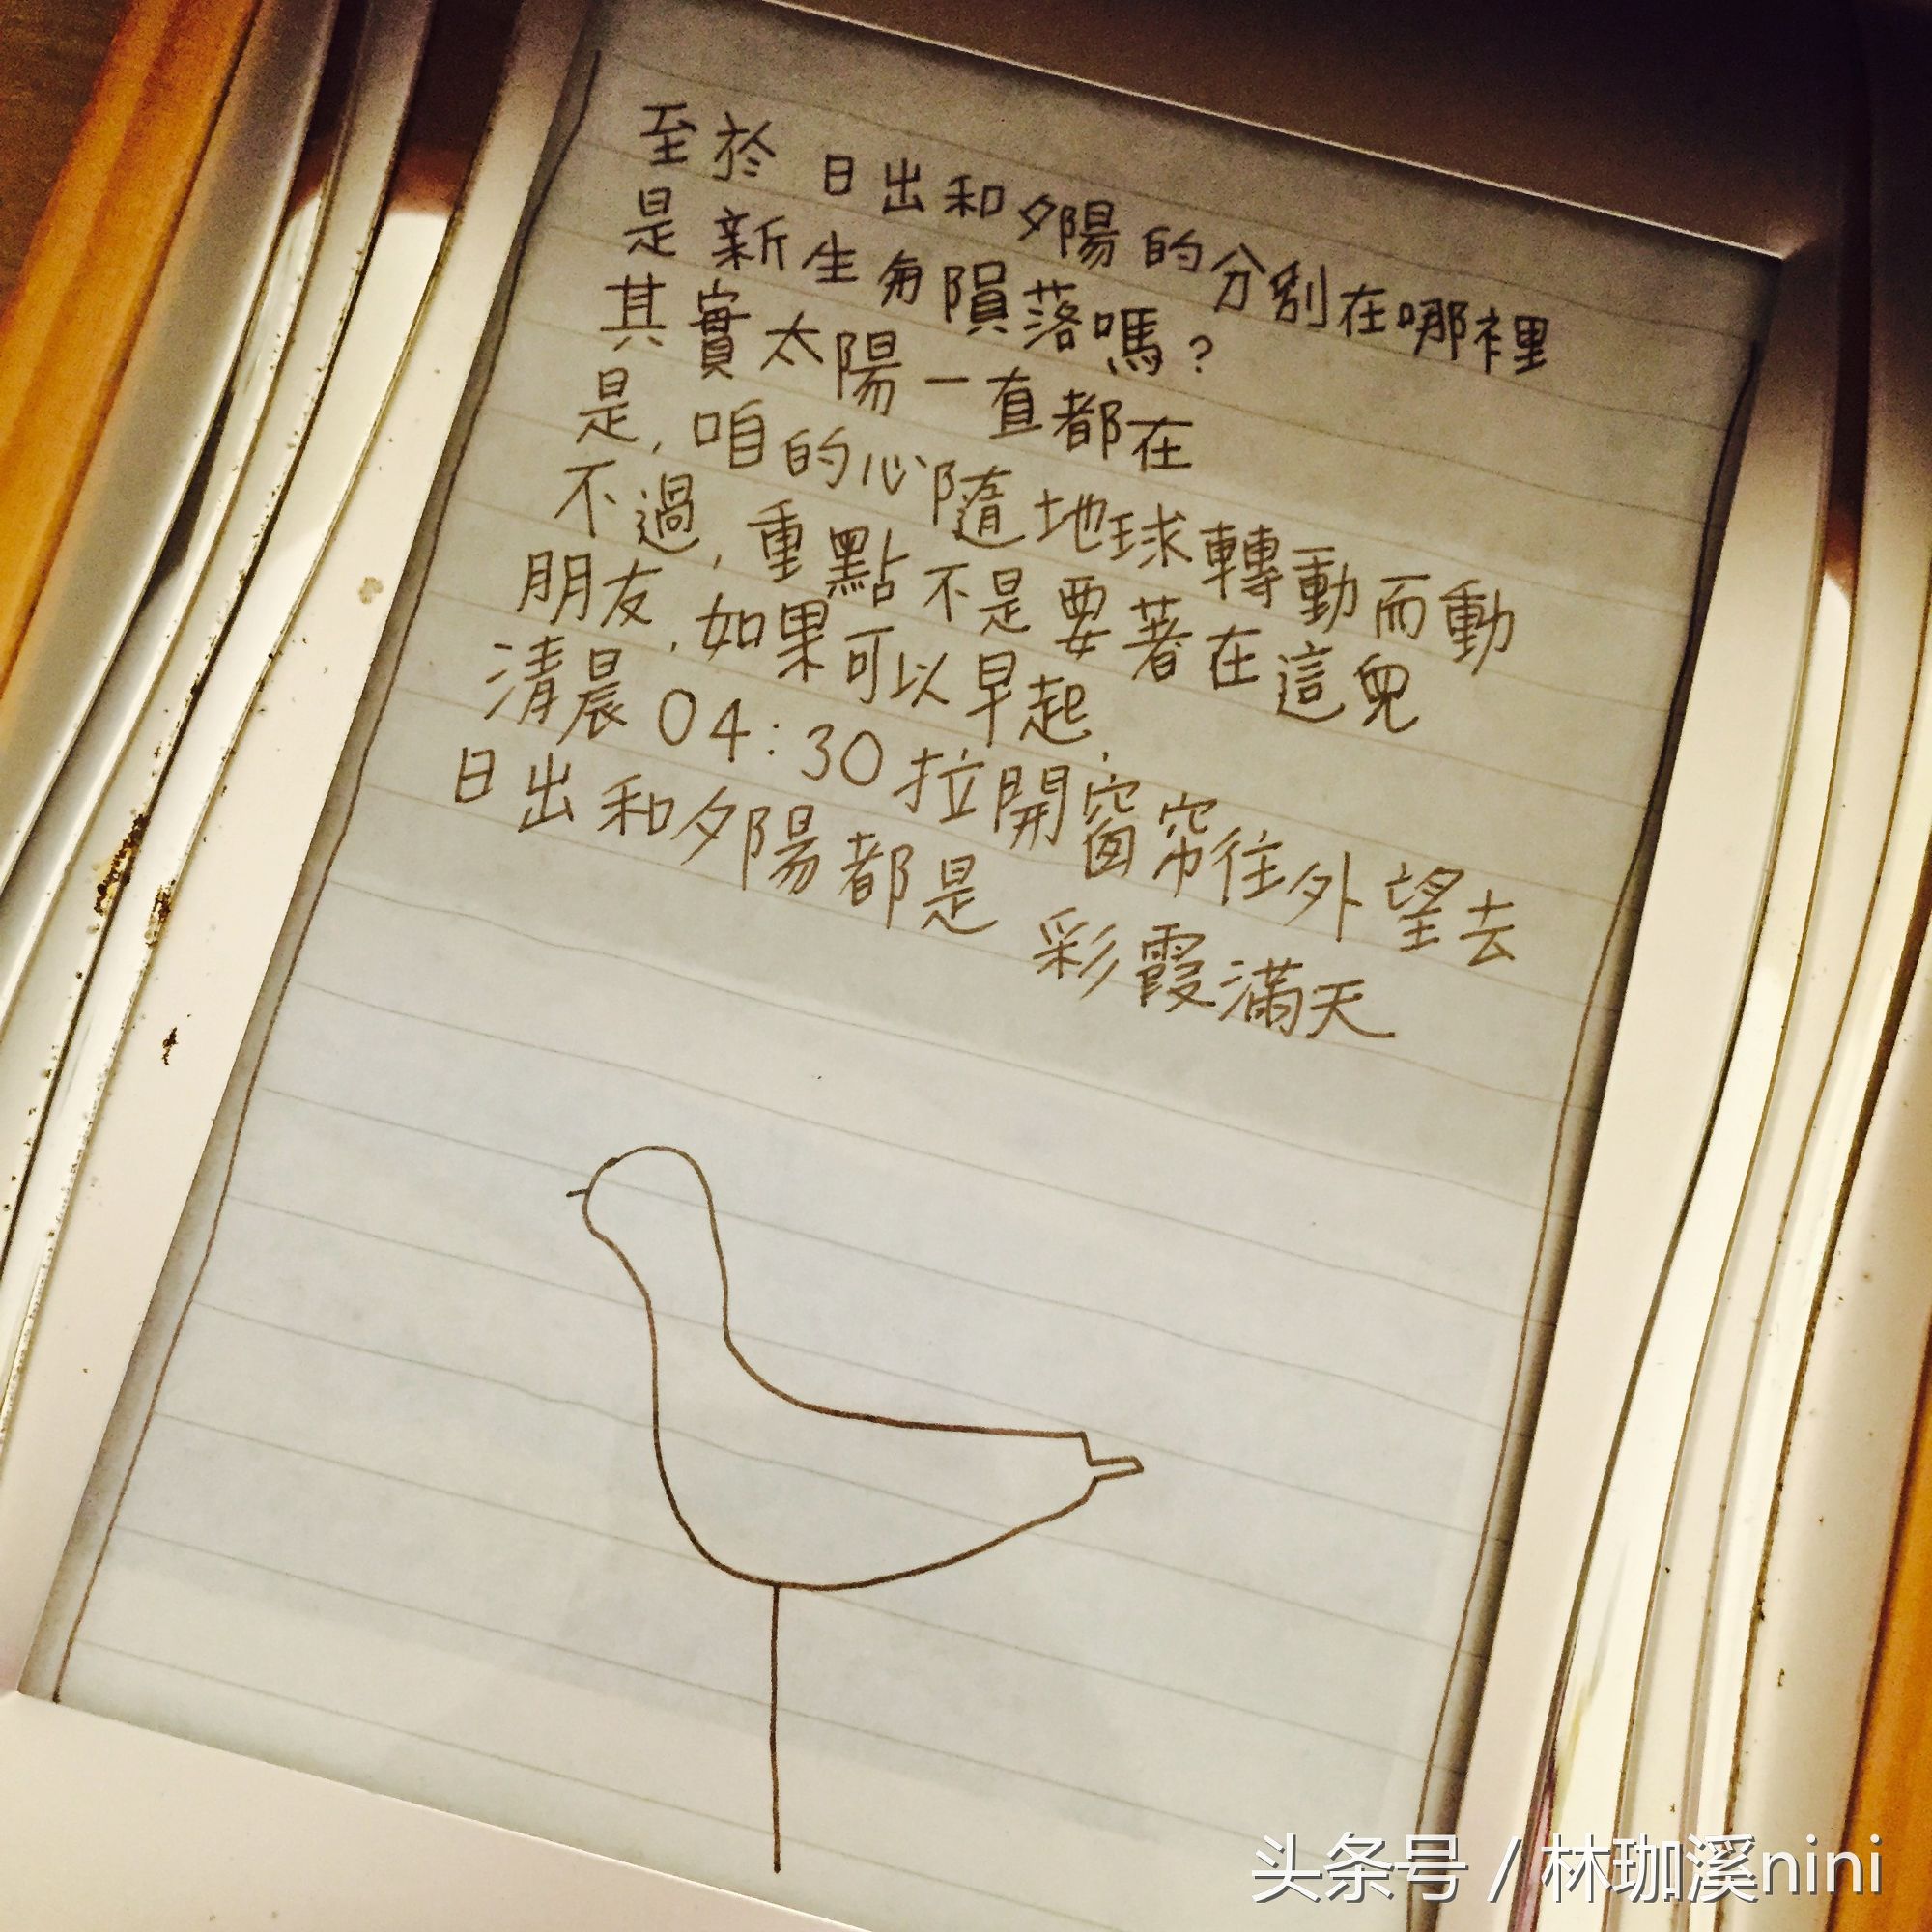 至於 日出和夕陽的分別在哪裡
是新生與隕落嗎?
其實太陽一直都在
是,咱的心隨地球轉動而動
不過,重點不是要著在這兒
朋友,如果可以早起,
清晨04:30拉開窗帘往外望去
日出和夕陽都是 彩霞滿天
头条号 / 林珈溪nini